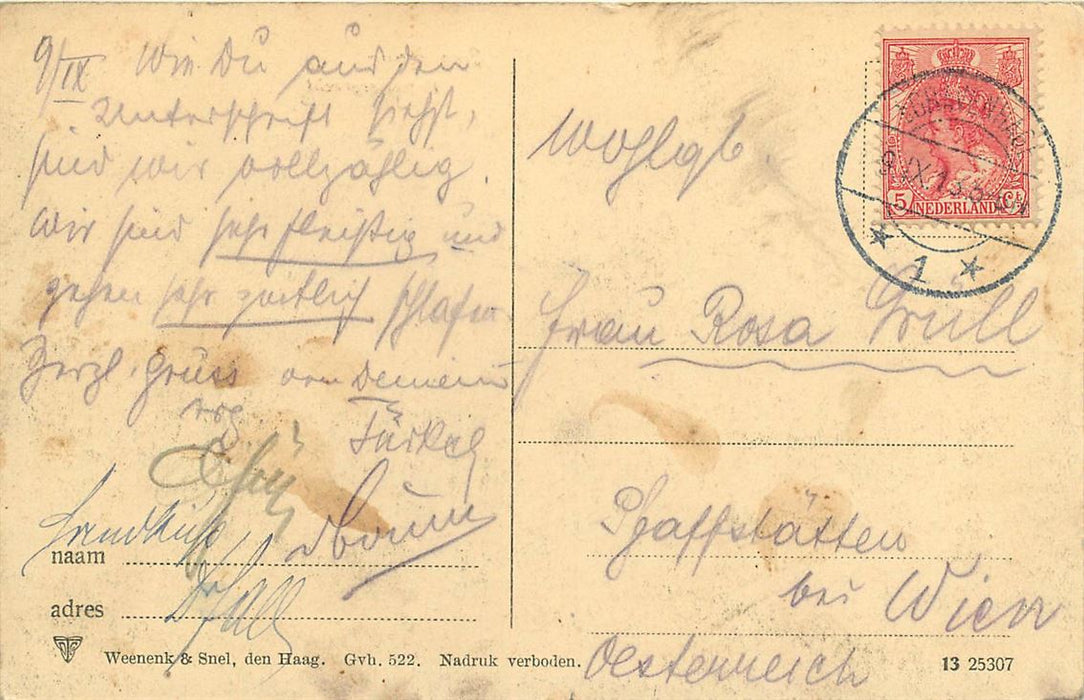 9/IX Wie Du aus den
Unterschrift siehst,
sind wir vollzählig.
Wir sind sehr fleißig und
gehen sehr zeitlich schlafen
Herzl. Gruss von Deinem
Wohlgb.
Frau Rosa Grüll
Pfaffstätten
bei Wien
Oesterreich
5 Ct
NEDERLAND
1
naam
adres
Weenenk & Snel, den Haag. Gvh. 522. Nadruk verboden.
13 25307